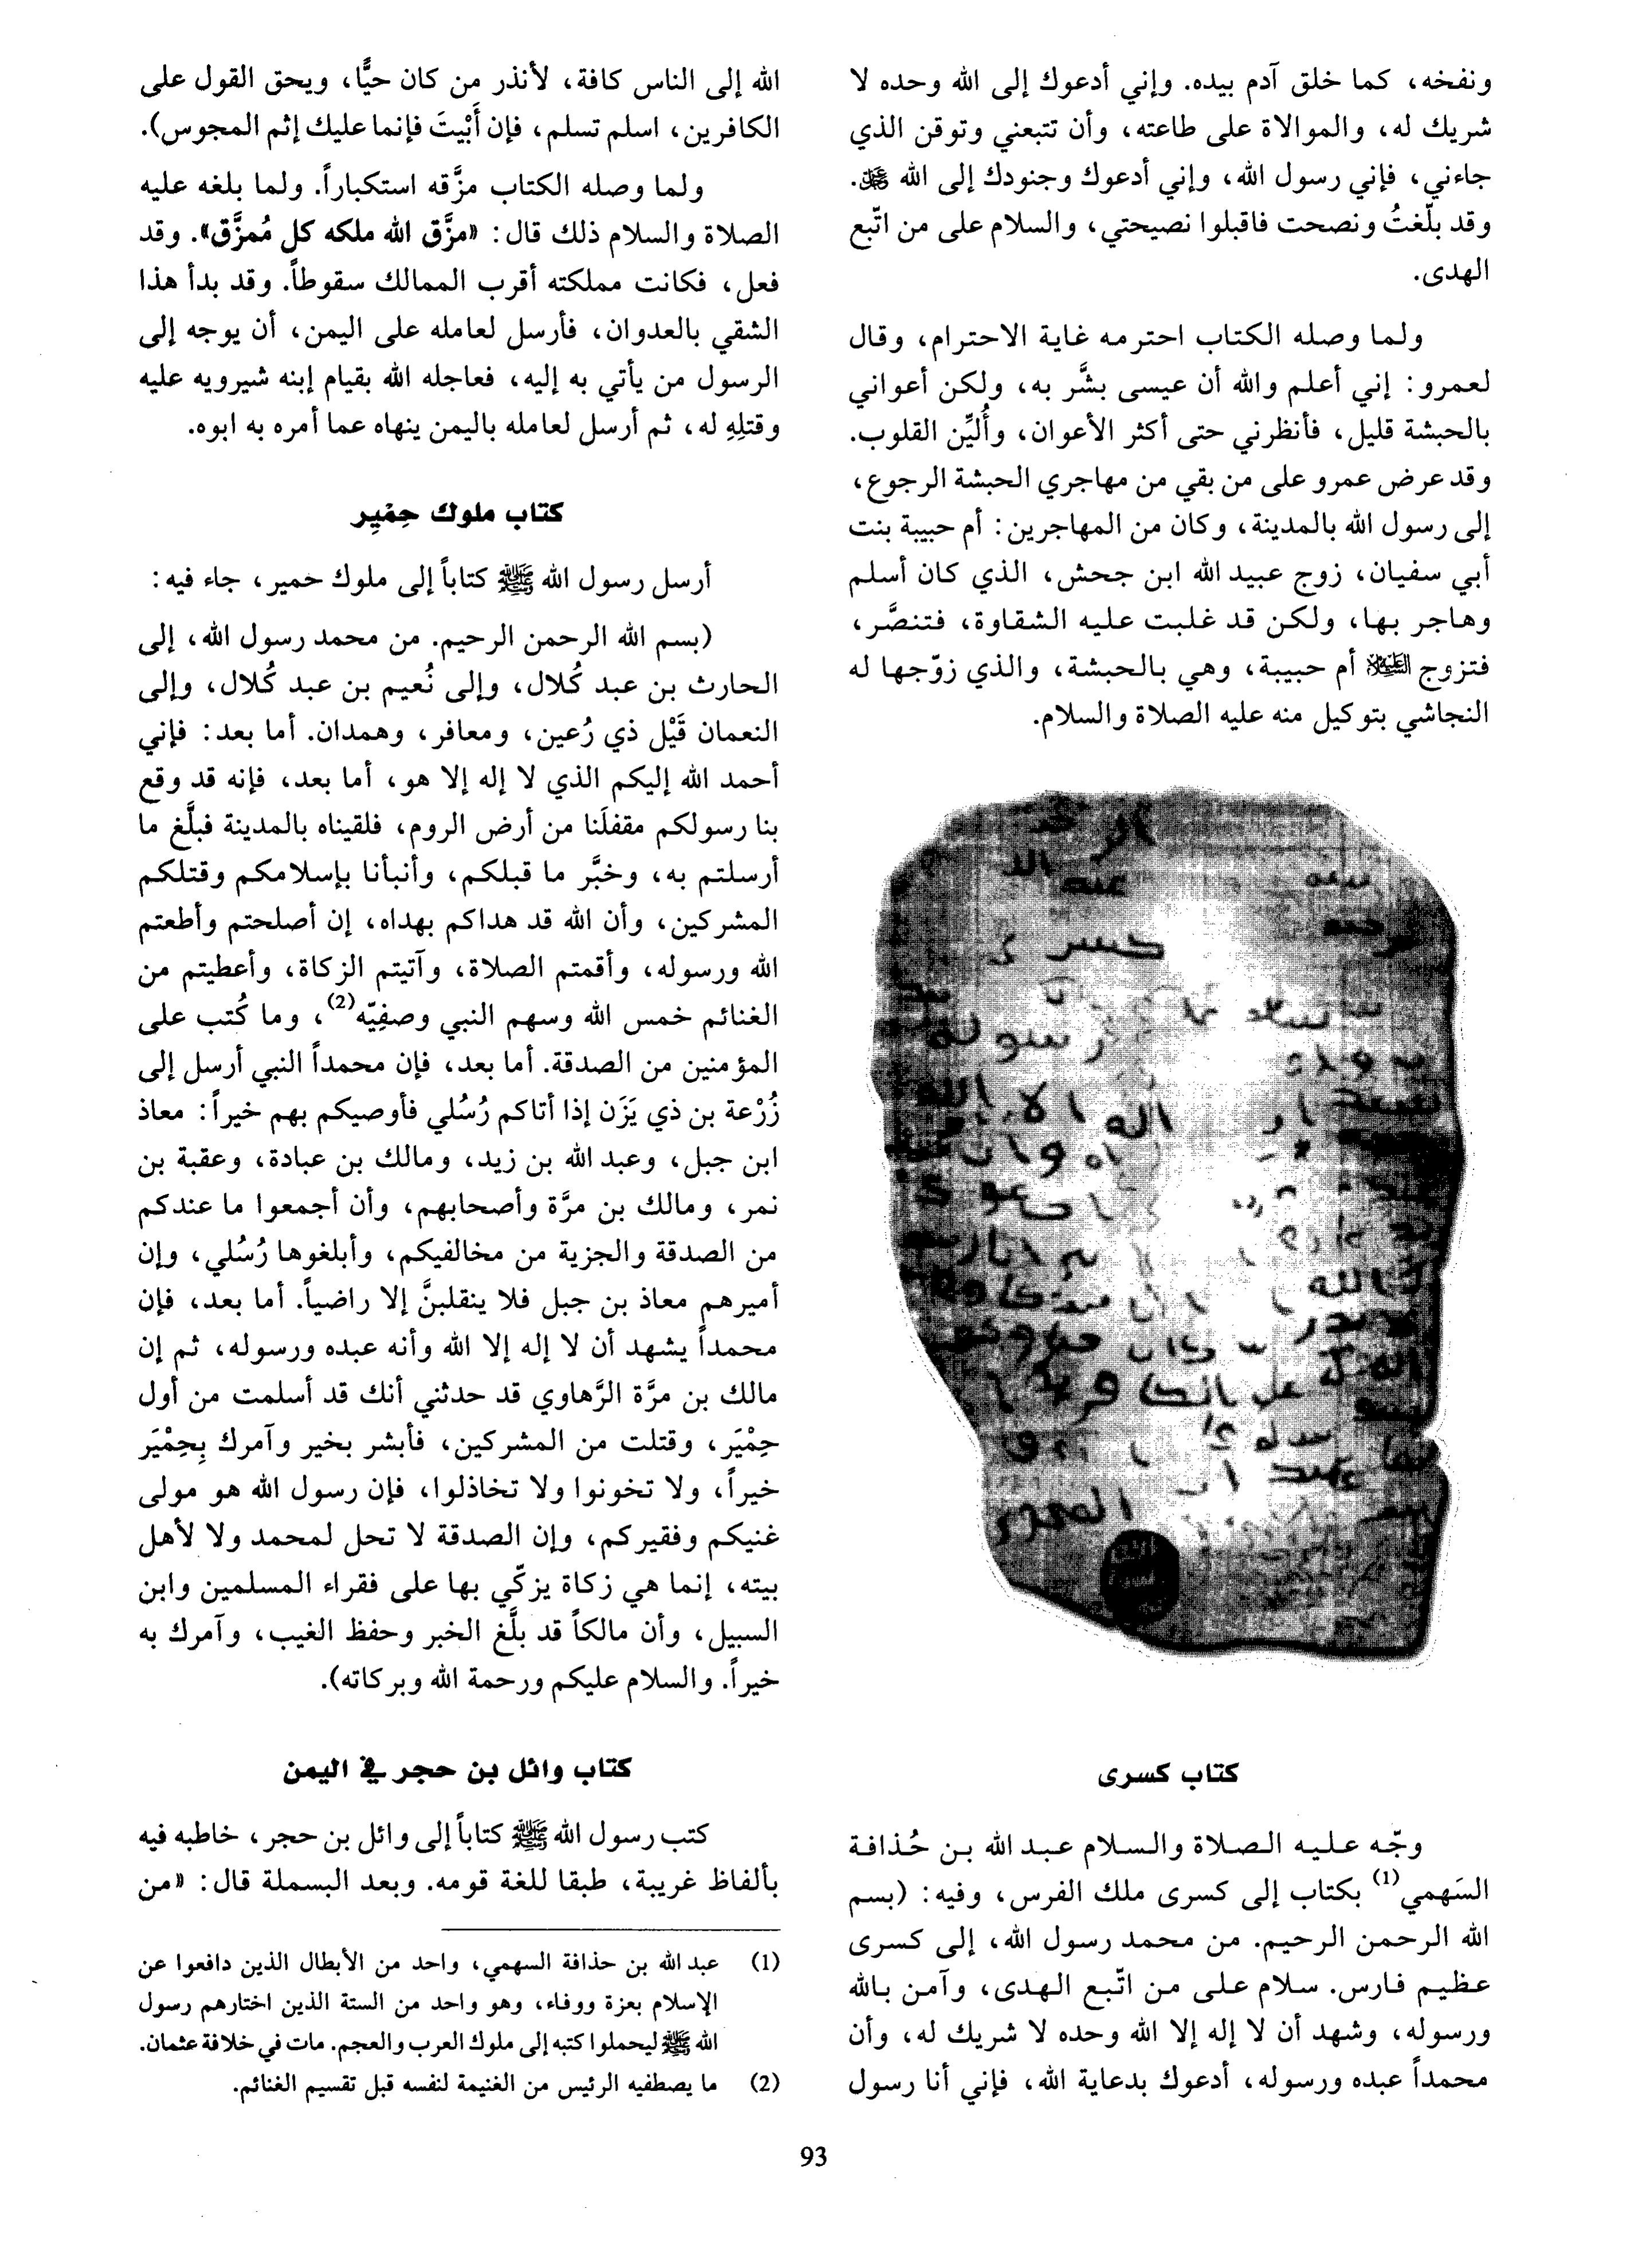 ونفخه، كما خلق آدم بيده. وإني أدعوك إلى الله وحده لا
شريك له، والموالاة على طاعته، وأن تتبعني وتوقن الذي
جاءني، فإني رسول الله، وإني أدعوك وجنودك إلى الله ﷿.
وقد بلّغتُ ونصحت فاقبلوا نصيحتي، والسلام على من اتّبع
الهدى.
ولما وصله الكتاب احترمه غاية الاحترام، وقال
لعمرو: إني أعلم والله أن عيسى بشَّر به، ولكن أعواني
بالحبشة قليل، فأنظرني حتى أكثر الأعوان، وأُليِّن القلوب.
وقد عرض عمرو على من بقي من مهاجري الحبشة الرجوع،
إلى رسول الله بالمدينة، وكان من المهاجرين: أم حبيبة بنت
أبي سفيان، زوج عبيد الله ابن جحش، الذي كان أسلم
وهاجر بها، ولكن قد غلبت عليه الشقاوة، فتنصَّر،
فتزوج عليه السلام أم حبيبة، وهي بالحبشة، والذي زوّجها له
النجاشي بتوكيل منه عليه الصلاة والسلام.
كسر
رسول
اله الا الله
كتاب كسرى
وجّه عليه الصلاة والسلام عبد الله بن حُذافة
السَهمي(1) بكتاب إلى كسرى ملك الفرس، وفيه: (بسم
الله الرحمن الرحيم. من محمد رسول الله، إلى كسرى
عظيم فارس. سلام على من اتّبع الهدى، وآمن بالله
ورسوله، وشهد أن لا إله إلا الله وحده لا شريك له، وأن
محمداً عبده ورسوله، أدعوك بدعاية الله، فإني أنا رسول
الله إلى الناس كافة، لأنذر من كان حيًّا، ويحق القول على
الكافرين، اسلم تسلم، فإن أَبْيتَ فإنما عليك إثم المجوس).
ولما وصله الكتاب مزَّقه استكباراً. ولما بلغه عليه
الصلاة والسلام ذلك قال: «مزَّق الله ملكه كل مُمزَّق». وقد
فعل، فكانت مملكته أقرب الممالك سقوطاً. وقد بدأ هذا
الشقي بالعدوان، فأرسل لعامله على اليمن، أن يوجه إلى
الرسول من يأتي به إليه، فعاجله الله بقيام إبنه شيرويه عليه
وقتلِهِ له، ثم أرسل لعامله باليمن ينهاه عما أمره به ابوه.
كتاب ملوك حِمْيِر
أرسل رسول الله ﷺ كتاباً إلى ملوك حمير، جاء فيه:
(بسم الله الرحمن الرحيم. من محمد رسول الله، إلى
الحارث بن عبد كُلال، وإلى نُعيم بن عبد كُلال، وإلى
النعمان قَيْل ذي رُعين، ومعافر، وهمدان. أما بعد: فإني
أحمد الله إليكم الذي لا إله إلا هو، أما بعد، فإنه قد وقع
بنا رسولكم مقفلَنا من أرض الروم، فلقيناه بالمدينة فبلَّغ ما
أرسلتم به، وخبَّر ما قبلكم، وأنبأنا بإسلامكم وقتلكم
المشركين، وأن الله قد هداكم بهداه، إن أصلحتم وأطعتم
الله ورسوله، وأقمتم الصلاة، وآتيتم الزكاة، وأعطيتم من
الغنائم خمس الله وسهم النبي وصفِيّه(2)، وما كُتب على
المؤمنين من الصدقة. أما بعد، فإن محمداً النبي أرسل إلى
زُرْعة بن ذي يَزَن إذا أتاكم رُسُلي فأوصيكم بهم خيراً: معاذ
ابن جبل، وعبد الله بن زيد، ومالك بن عبادة، وعقبة بن
نمر، ومالك بن مرَّة وأصحابهم، وأن أجمعوا ما عندكم
من الصدقة والجزية من مخالفيكم، وأبلغوها رُسُلي، وإن
أميرهم معاذ بن جبل فلا ينقلبنَّ إلا راضياً. أما بعد، فإن
محمداً يشهد أن لا إله إلا الله وأنه عبده ورسوله، ثم إن
مالك بن مرَّة الرَّهاوي قد حدثني أنك قد أسلمت من أول
حِمْيَر، وقتلت من المشركين، فأبشر بخير وآمرك بِحِمْيَر
خيراً، ولا تخونوا ولا تخاذلوا، فإن رسول الله هو مولى
غنيكم وفقيركم، وإن الصدقة لا تحل لمحمد ولا لأهل
بيته، إنما هي زكاة يزكّي بها على فقراء المسلمين وابن
السبيل، وأن مالكاً قد بلَّغ الخبر وحفظ الغيب، وآمرك به
خيراً. والسلام عليكم ورحمة الله وبركاته).
كتاب وائل بن حجر في اليمن
كتب رسول الله ﷺ كتاباً إلى وائل بن حجر، خاطبه فيه
بألفاظ غريبة، طبقا للغة قومه. وبعد البسملة قال: «من
(1) عبد الله بن حذافة السهمي، واحد من الأبطال الذين دافعوا عن
الإسلام بعزة ووفاء، وهو واحد من الستة الذين اختارهم رسول
الله ﷺ ليحملوا كتبه إلى ملوك العرب والعجم. مات في خلافة عثمان.
(2) ما يصطفيه الرئيس من الغنيمة لنفسه قبل تقسيم الغنائم.
93